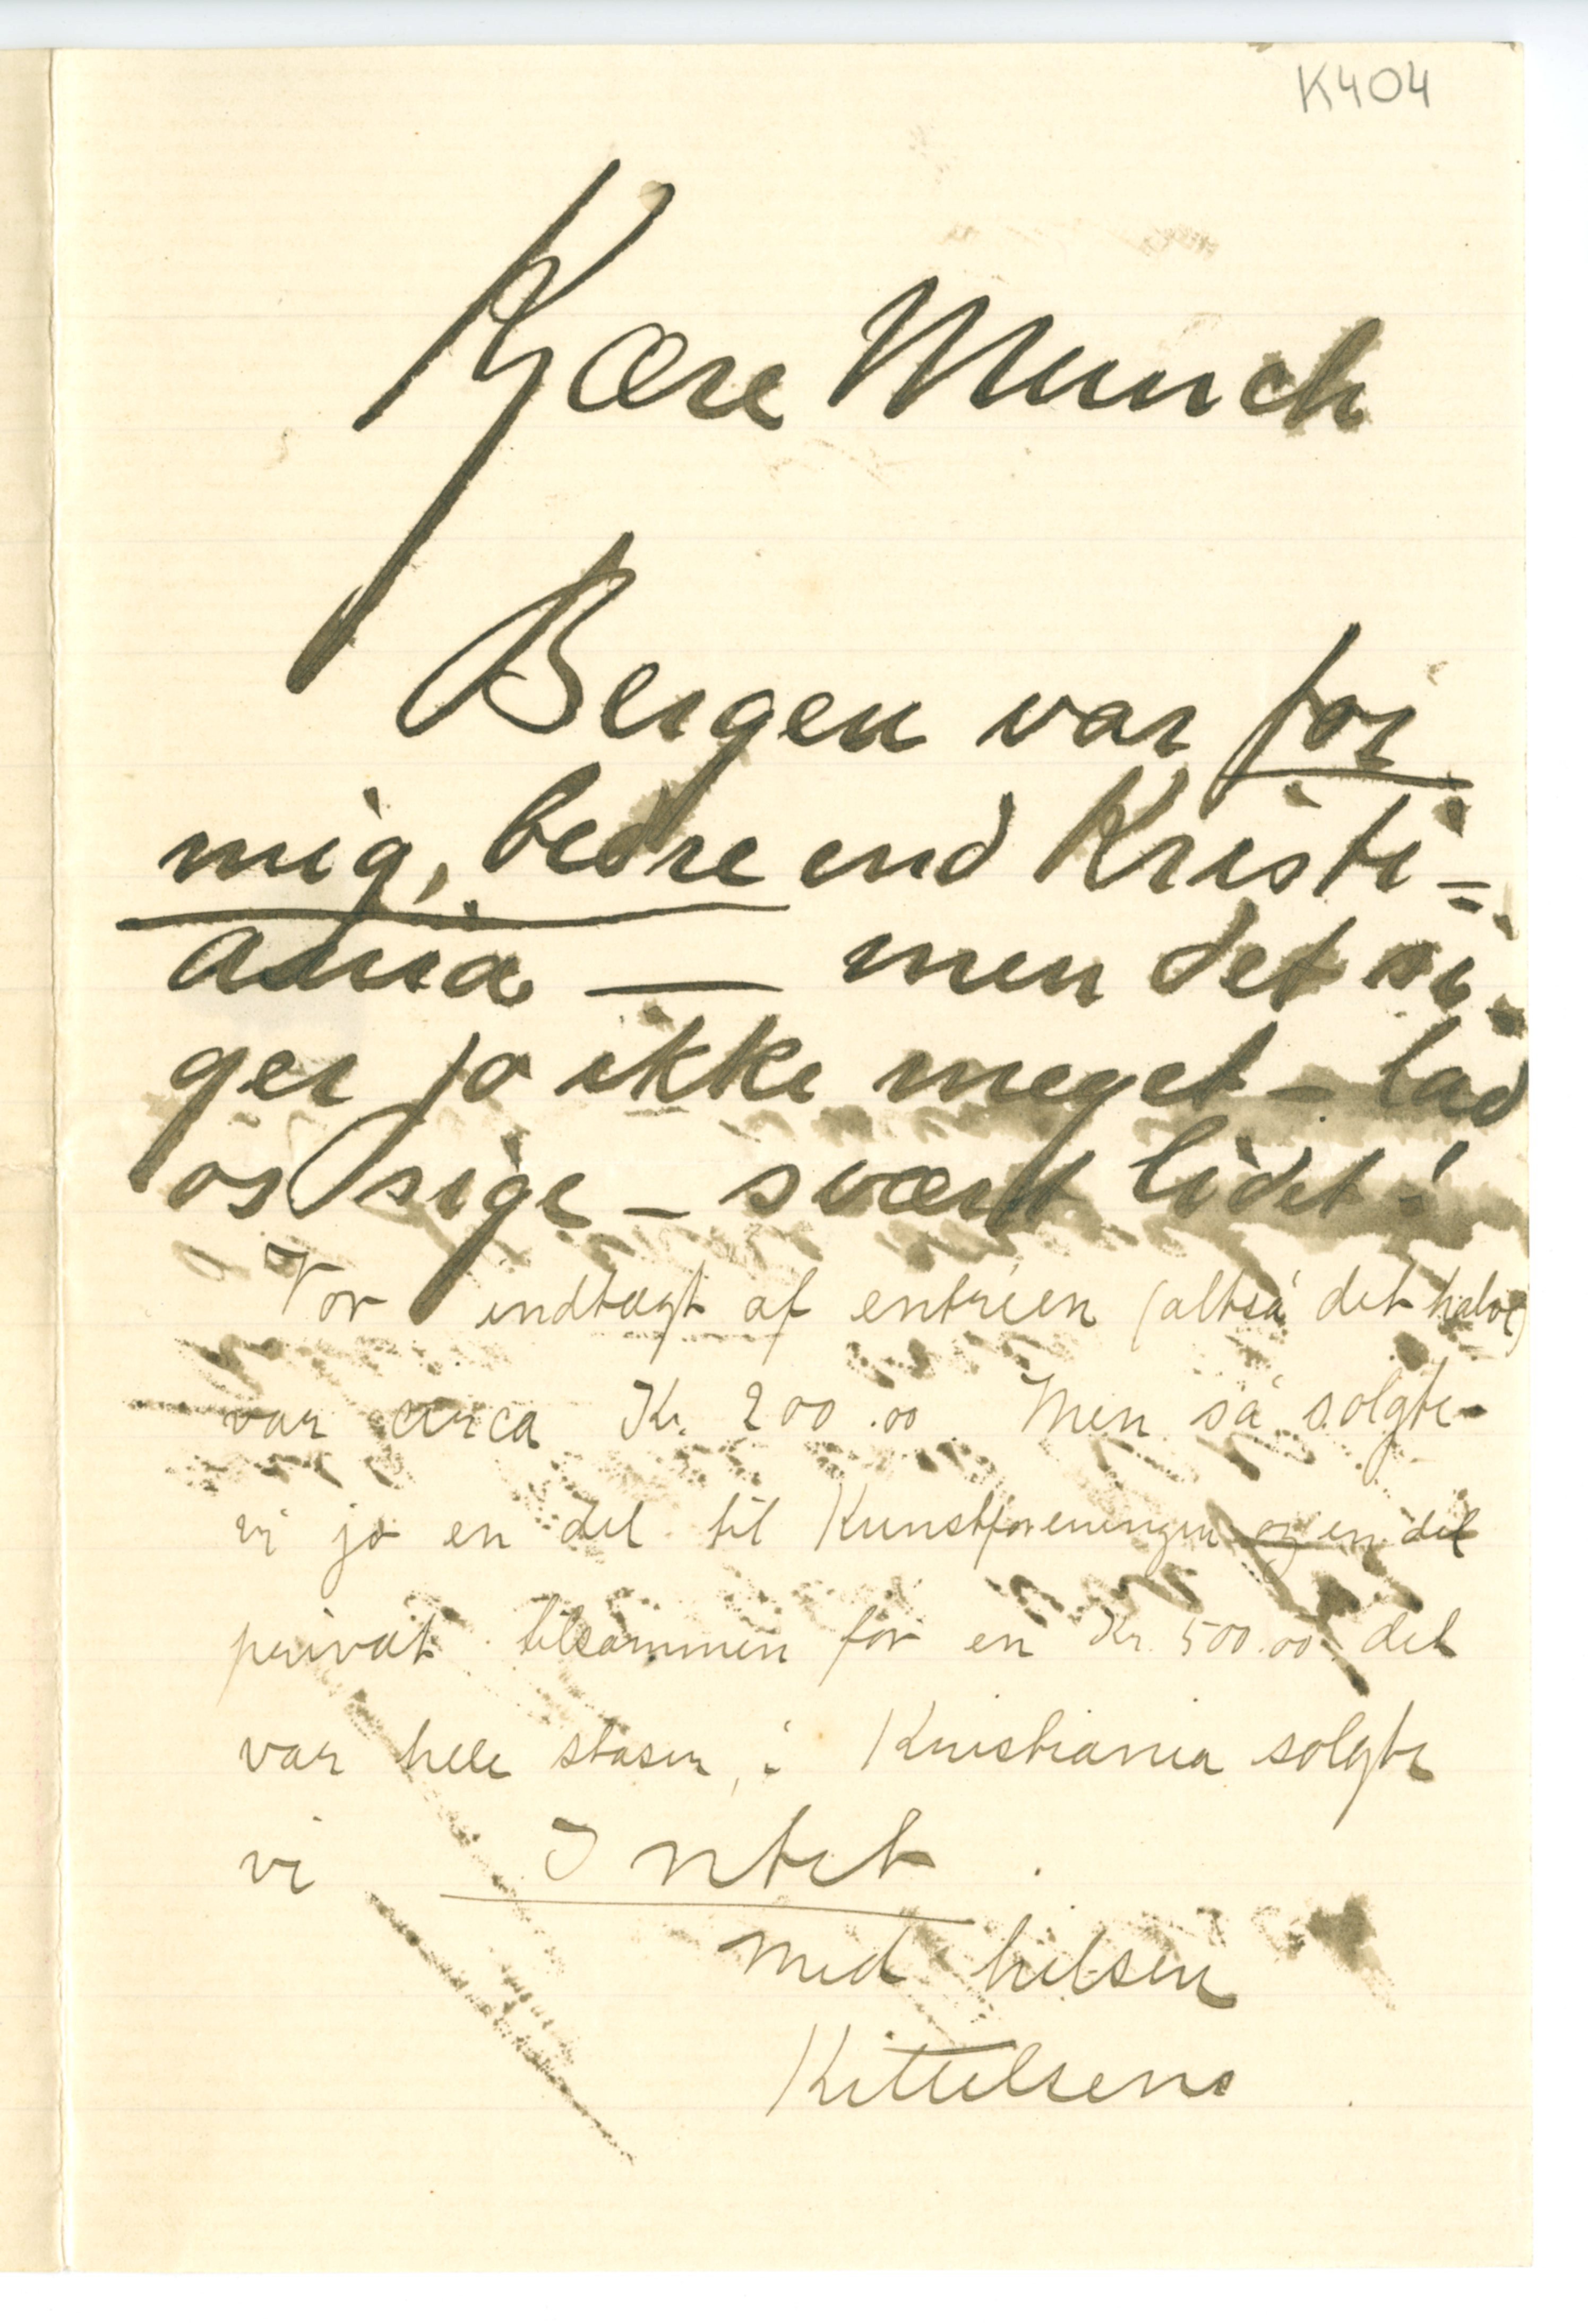 K404
Kjære Munch
Bergen var for
mig, bedre end Kristi=
ania — men det si
ger jo ikke meget – lad
os sige – svært lidet!
Vor indtægt af entréen (altså det halve)
var circa Kr. 200.00 Men så solgte
vi jo en del til Kunstforeningen og en del
privat tilsammen for en Kr. 500.00 det
var hele stasen, i Kristiania solgte
vi Intet.
Med hilsen
Kittelsen